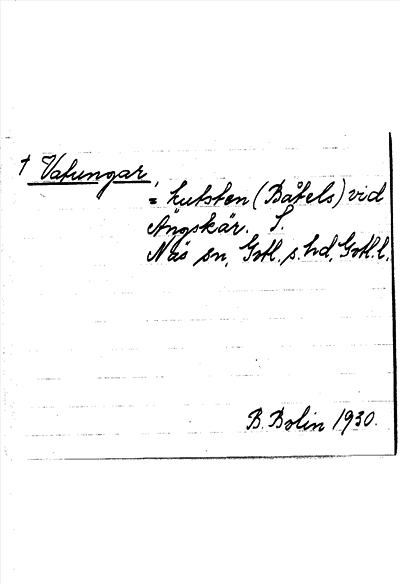 † Vatungar,
= kutsten (Båtels) vid
Ängskär. S.
Näs sn, Gotl. s. hd, Gotl. l.
B. Bolin 1930.